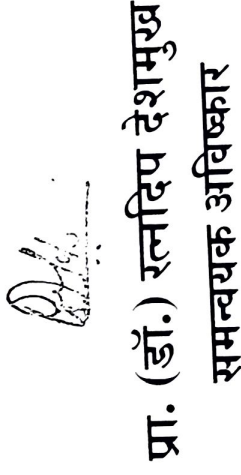 प्रा. (डॉ.) रत्नदिप देशमुख
समन्वयक अविष्कार